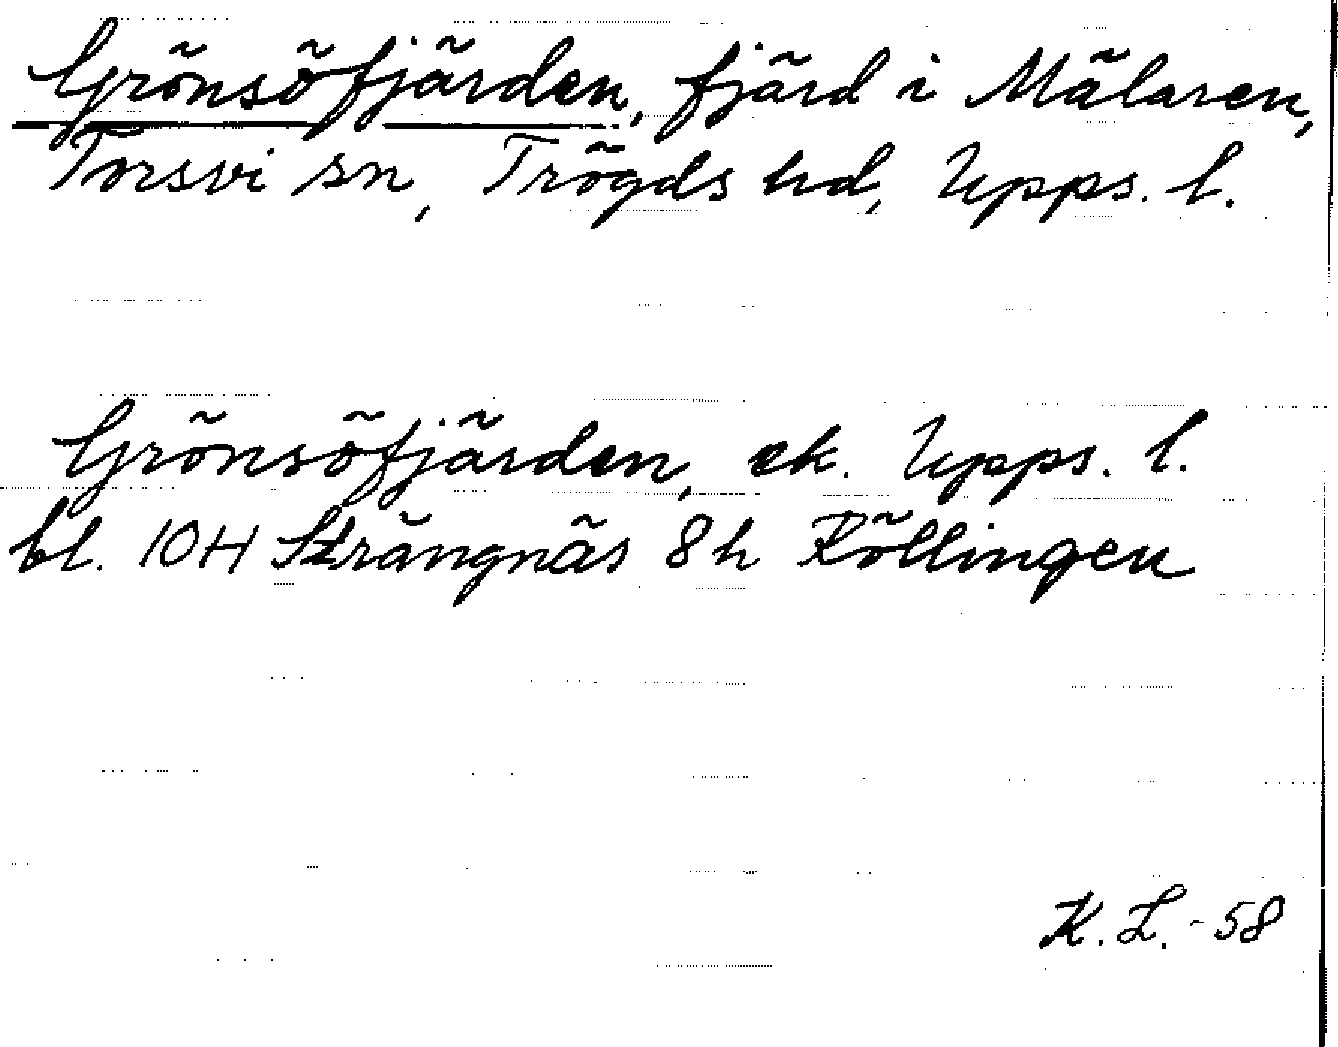 Grönsöfjärden, fjärd i Mälaren,
Torsvi sn, Trögds hd, Upps. l.
Grönsöfjärden, ek. Upps. l.
bl. 10H Strängnäs 8h Röllingen
K.L. -58